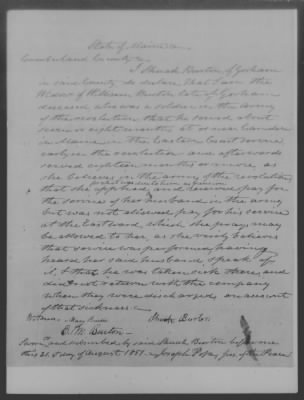 State of Maine
Cumberland County
I Shuah Burton of Gorham
in said County do declare that I am the
Widow of William Burton late of Gorham
deceased who was a soldier in the army
of the revolution that he served about
seven or eight months at or near Camden
in Maine in the Eastern Coast service
early in the revolution and afterwards
served eighteen months or more as
she believes in the army of the revolution
that she applied and received pay for
the service of her husband in the army
but was not allowed pay for his service
at the Eastward which she prays may
be allowed to her as she verily believes
that service was performed, having
heard her said husband speak of
it, & that he was taken sick there, and
did not return with the company
when they were discharged on account
of that sickness.
Witness Mary
Shuah Burton
E. W. Burton
Sworn and subscribed by said Shuah Burton before me
this 21st day of August 1851. Joseph Jus. of the Peace